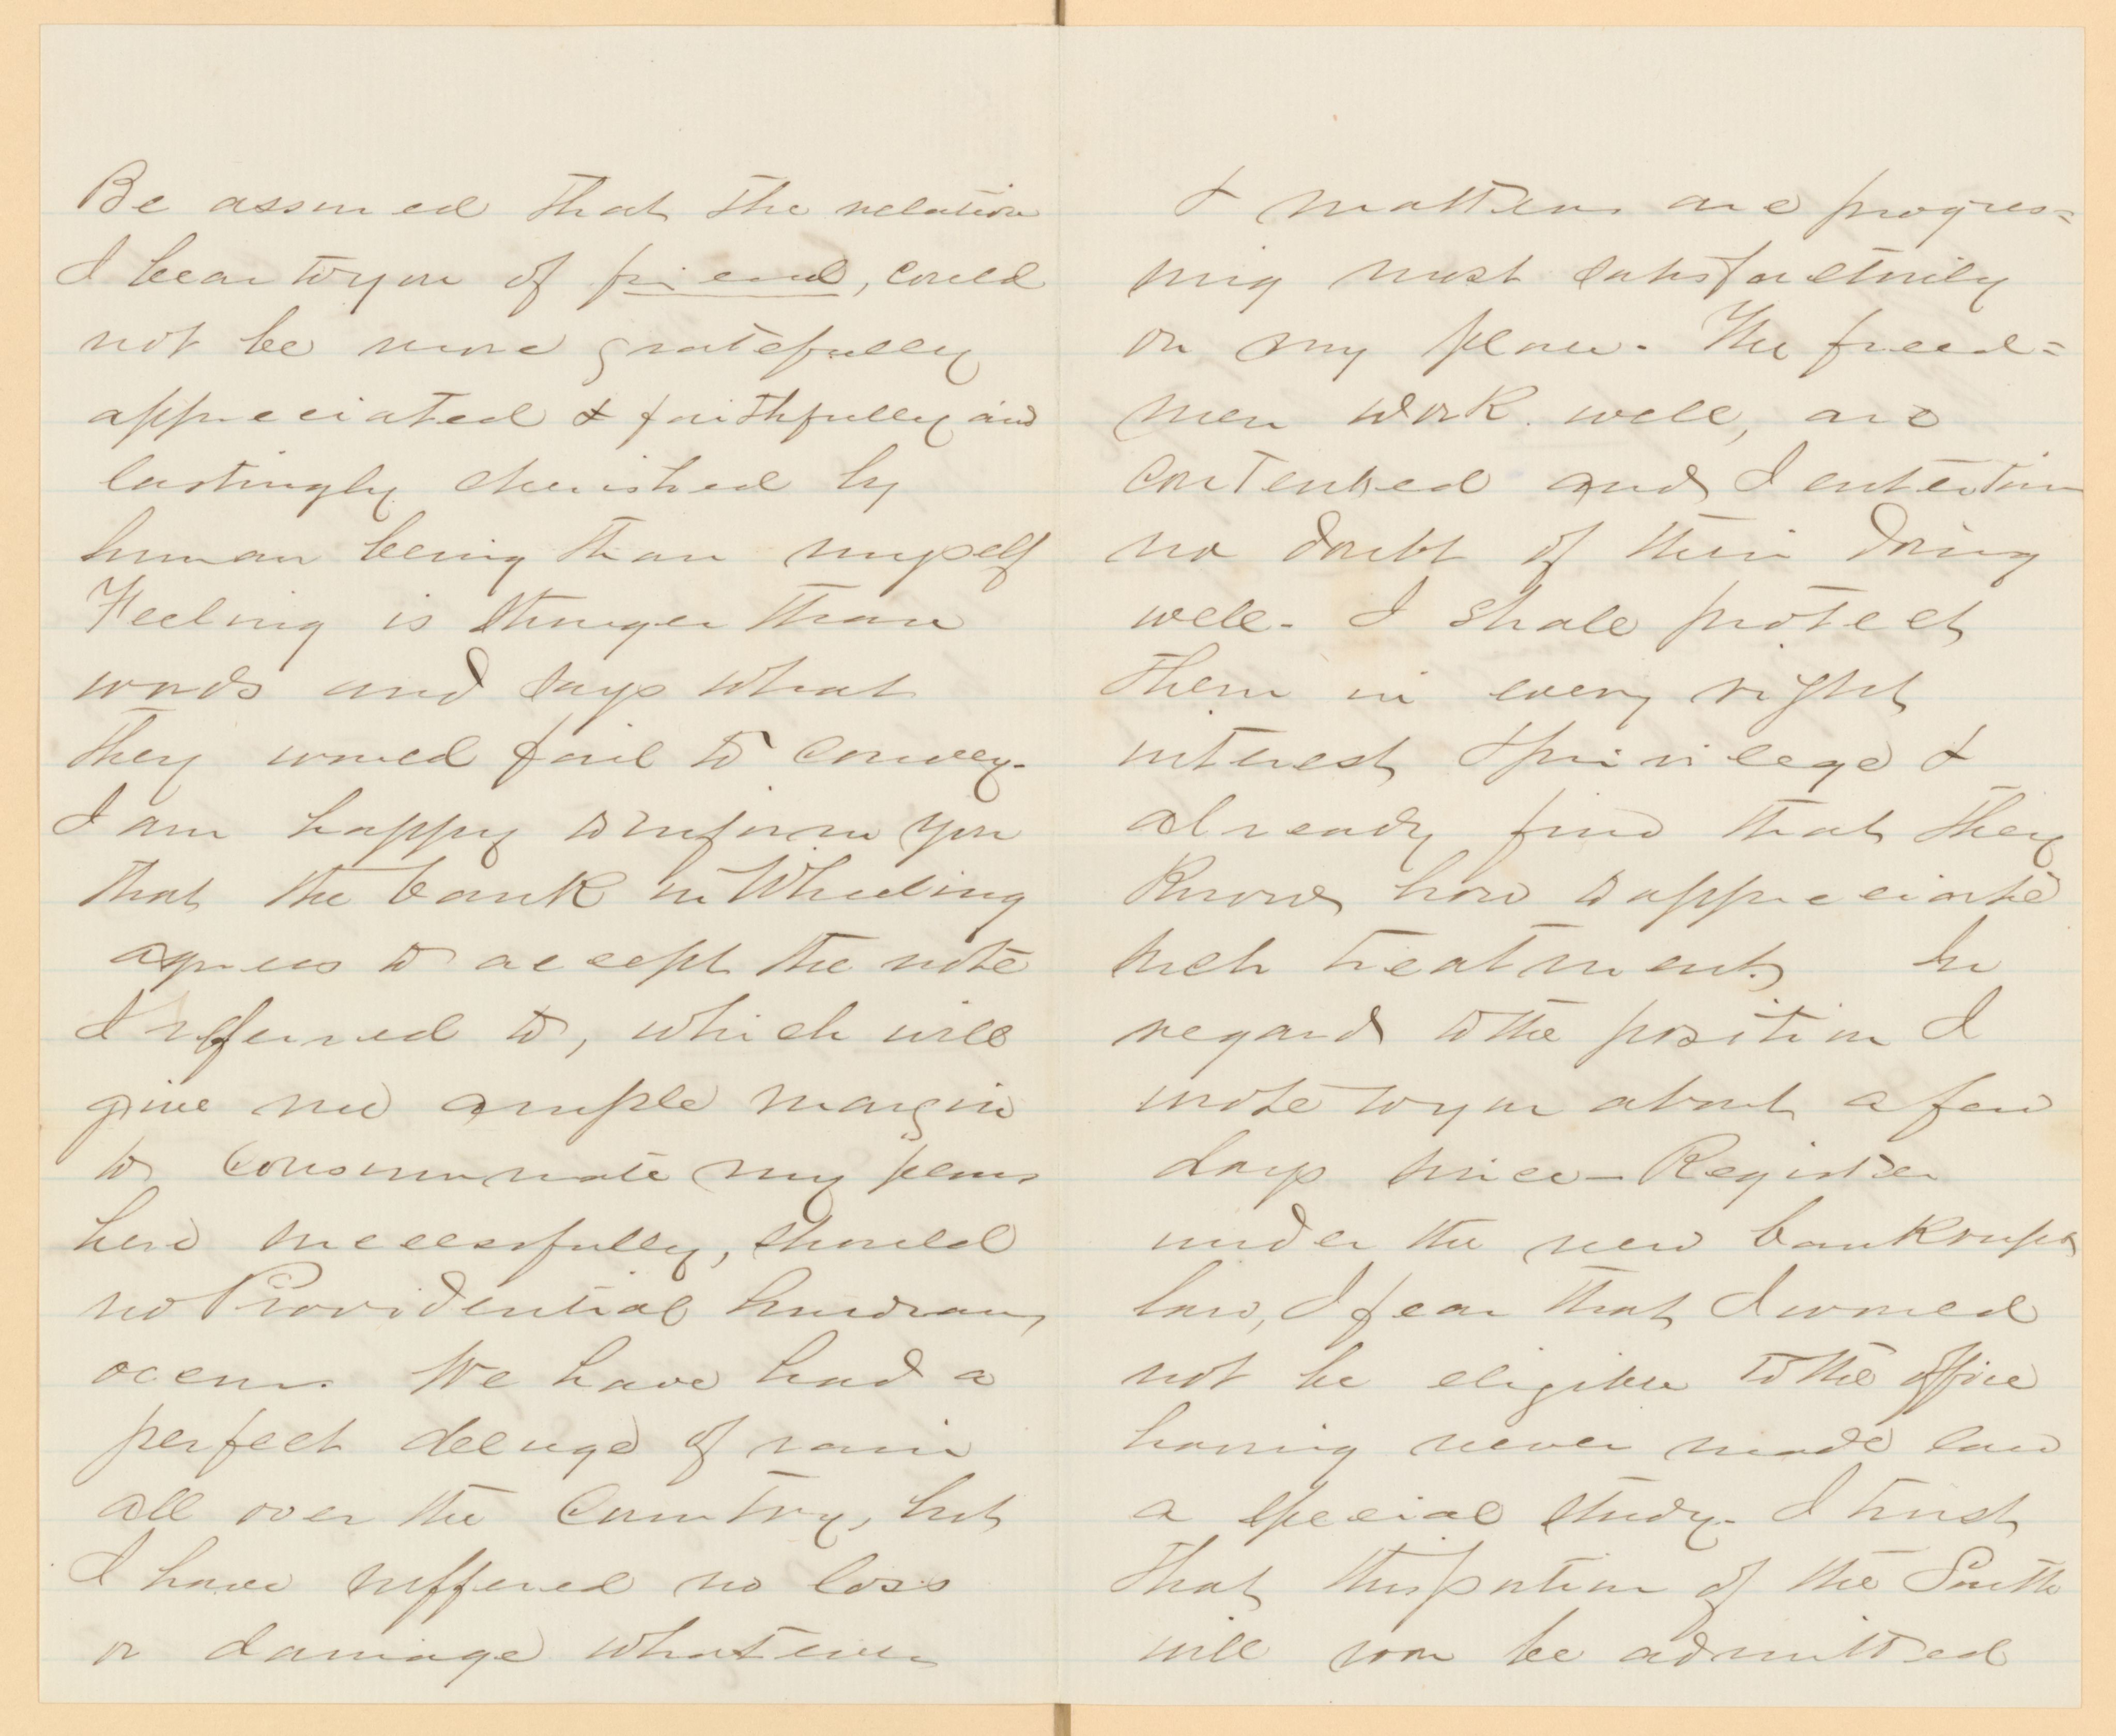 Be assured that the relation
I bear to you of friend, could
not be more gratefully
appreciated & faithfully and
lastingly cherished by
human being than myself
Feeling is stronger than
words and says what
they would fail to convey.
I am happy to inform you
that the bank in Wheeling
agrees to accept the note
I referred to, which will
give me ample margin
to consummate my plans
here successfully, should
no Providential hindrance
occur. We have had a
perfect deluge of rain
all over the Country, but
I have suffered no loss
or damage whatever
& matters are progres=
sing most satisfactorily
on my place. The freed=
men work well, are
contented and I entertain
no doubt of their doing
well. I shall protect
them in every right
interest & privilege &
already find that they
know how to appreciate
such treatment. In
regard to the position I
wrote to you about a few
days since - Register
under the new bankrupt
law, I fear that I would
not be eligible to the office
having never made law
a special study. I trust
that this portion of the South
will soon be admitted